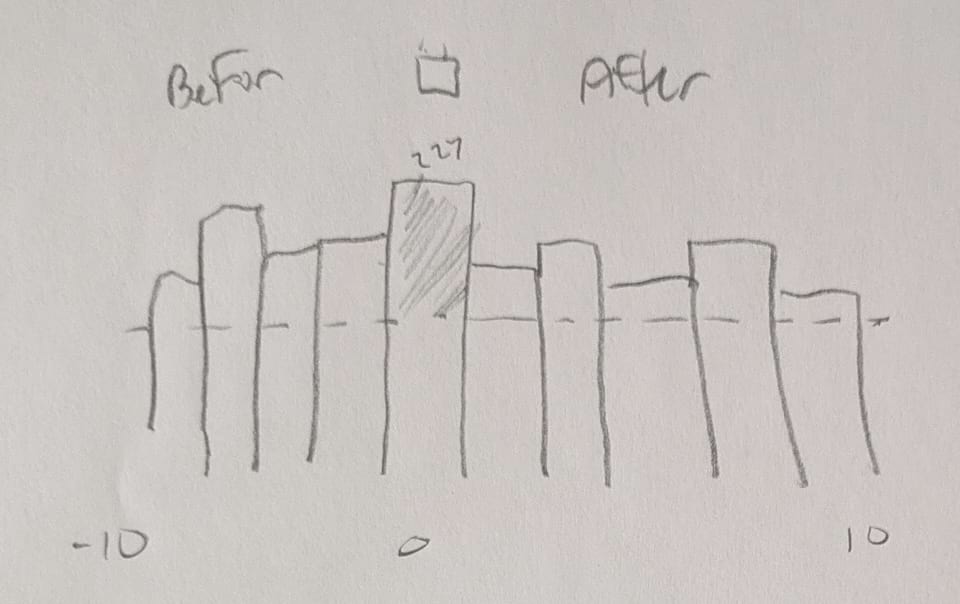 Befor After
227
-10 0 10